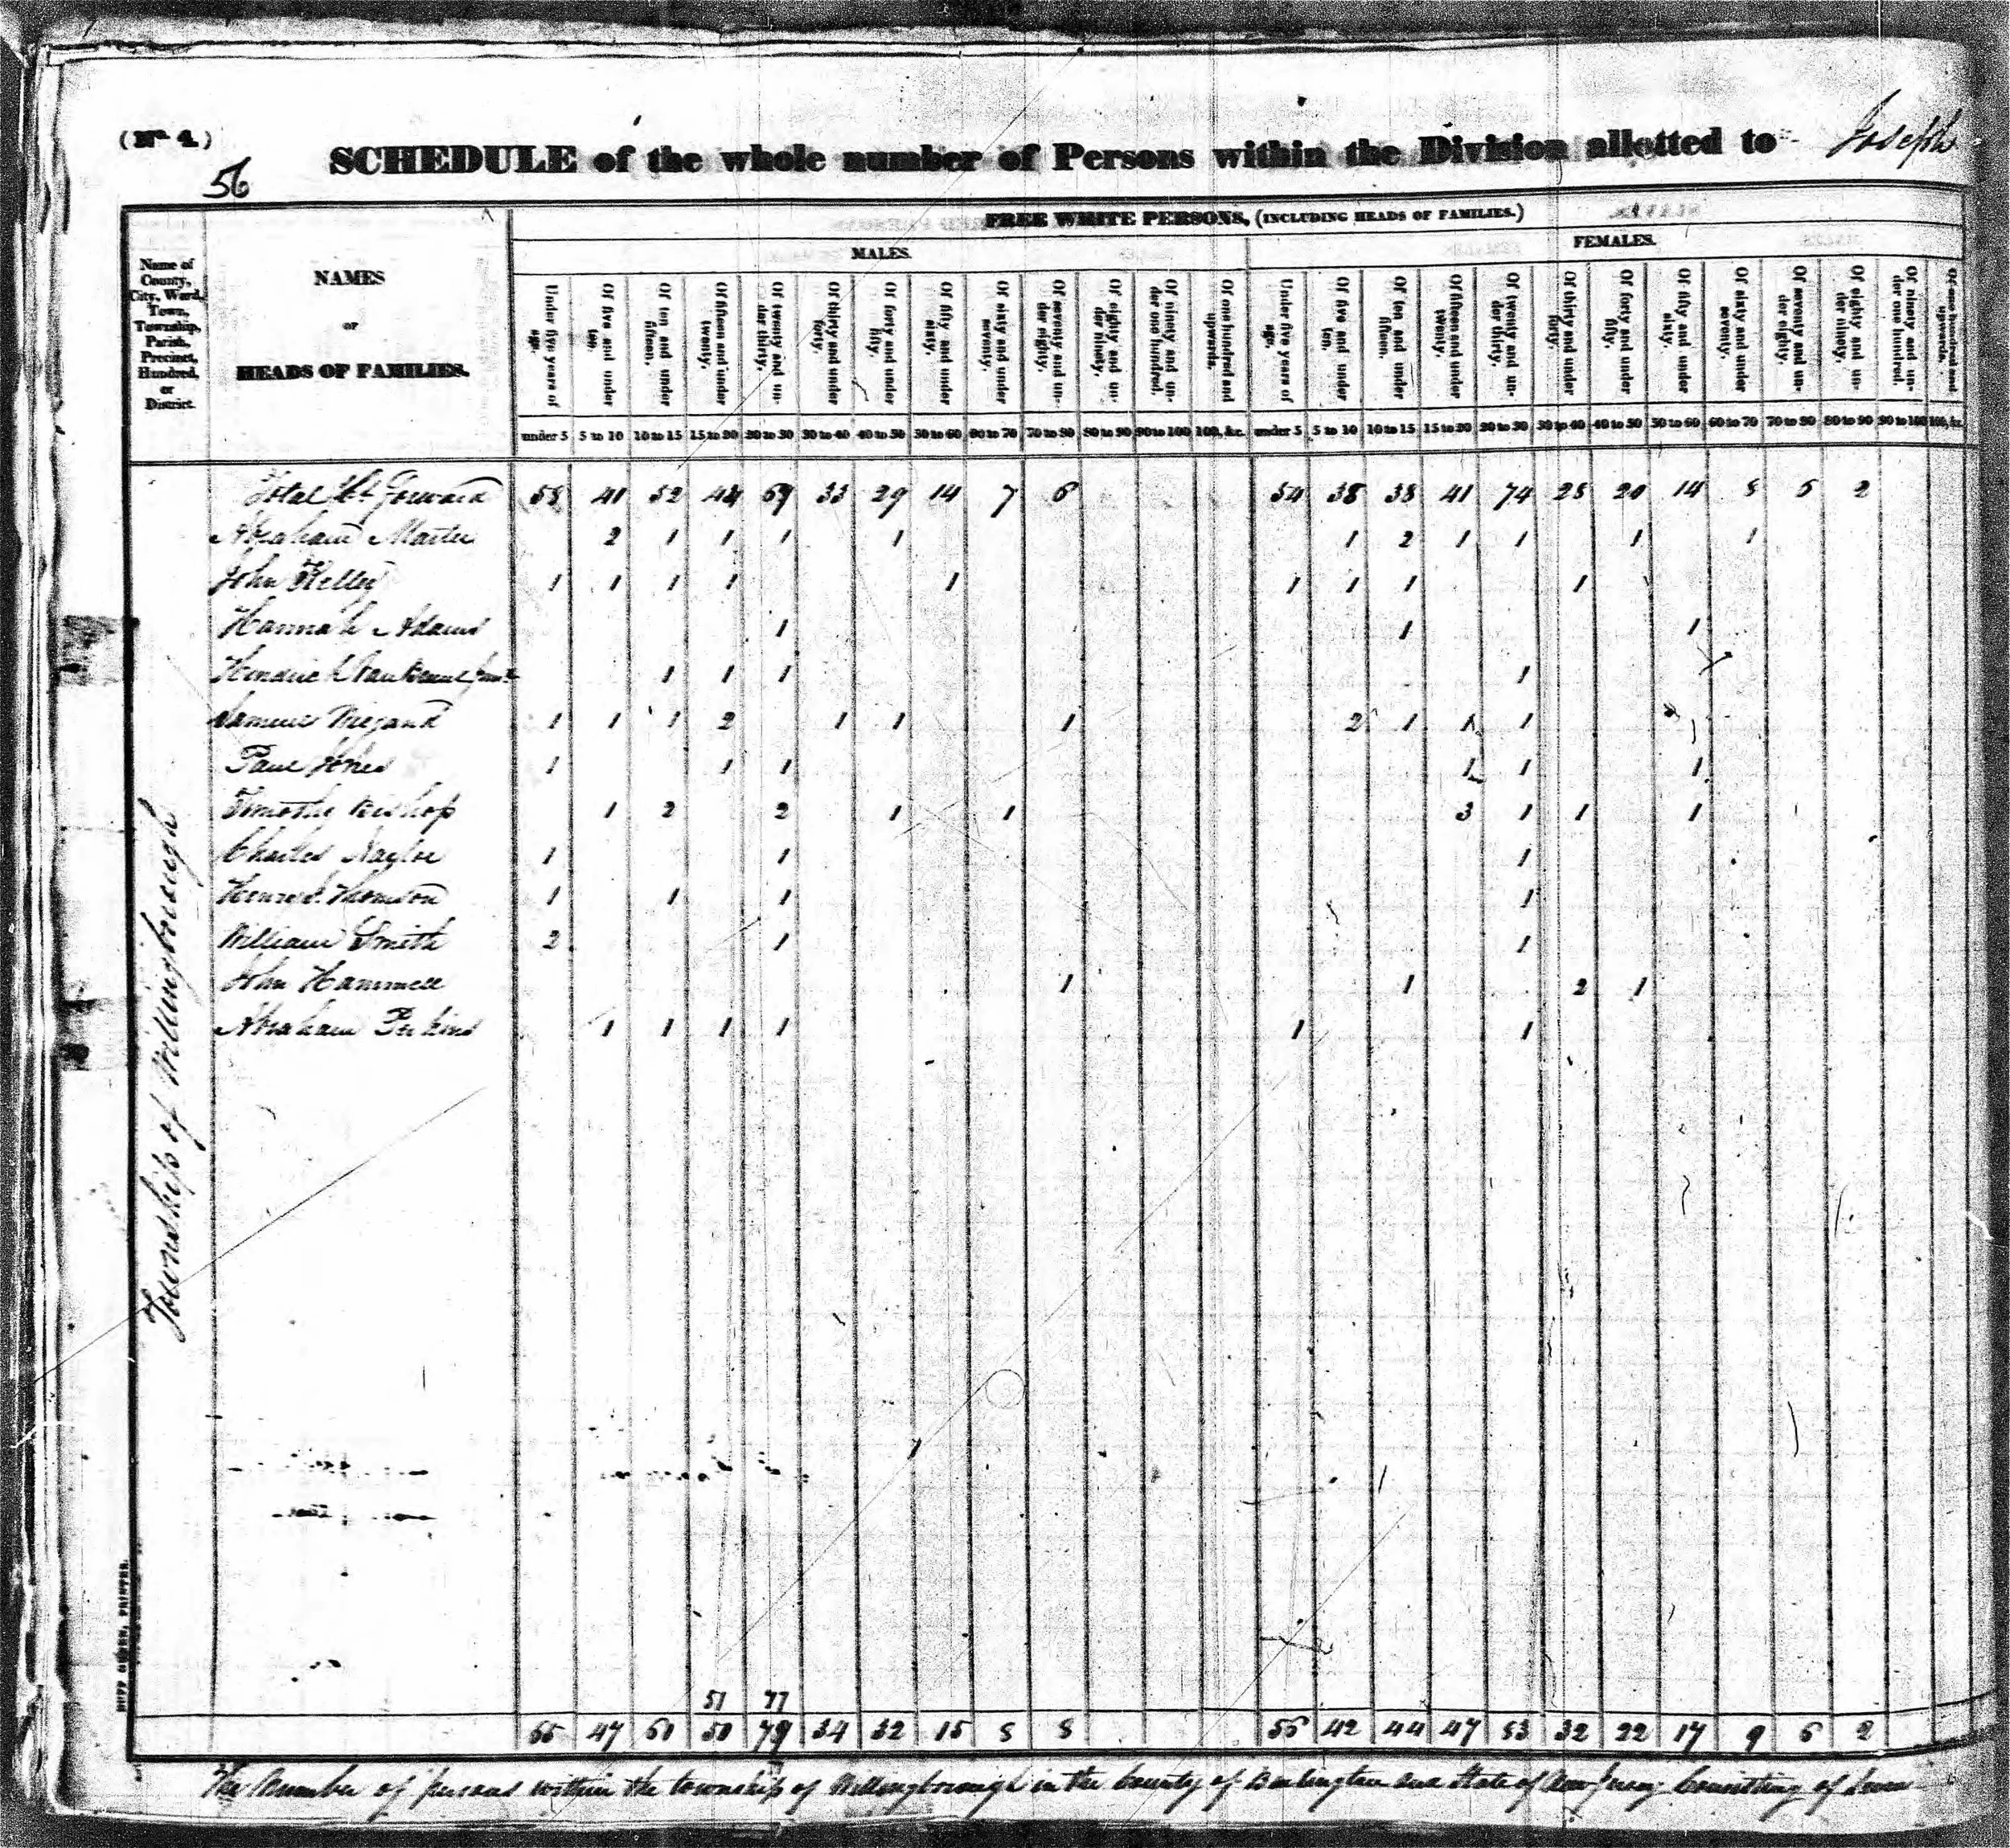 (No. 4.)
56
SCHEDULE of the whole number of Persons within the Division allotted to Joseph
Name of County, City, Ward, Town, Township, Parish, Precinct, Hundred, or District.
NAMES
or
HEADS OF FAMILIES.
FREE WHITE PERSONS, (INCLUDING HEADS OF FAMILIES.)
MALES.
FEMALES.
Under five years of age.
Of five and under ten,
Of ten and under fifteen,
Of fifteen and under twenty,
Of twenty and under thirty,
Of thirty and under forty,
Of forty and under fifty,
Of fifty and under sixty,
Of sixty and under seventy,
Of seventy and under eighty,
Of eighty and under ninety,
Of ninety and under one hundred.
Of one hundred and upwards.
Under five years of age,
Of five and under ten,
Of ten and under fifteen,
Of fifteen and under twenty,
Of twenty and under thirty,
Of thirty and under forty,
Of forty and under fifty,
Of fifty and under sixty,
Of sixty and under seventy,
Of seventy and under eighty,
Of eighty and under ninety,
Of ninety and under one hundred.
Of one hundred and upwards.
under 5 5 to 10 10 to 15 15 to 20 20 to 30 30 to 40 40 to 50 50 to 60 60 to 70 70 to 80 80 to 90 90 to 100 100, &c. under 5 5 to 10 10 to 15 15 to 20 20 to 30 30 to 40 40 to 50 50 to 60 60 to 70 70 to 80 80 to 90 90 to 100 100, &c.
Total Forward 58 41 52 44 69 33 29 14 7 6 54 38 38 41 74 28 20 14 8 6 2
Abraham 2 1 1 1 1 1 2 1 1 1 1
John Kelley 1 1 1 1 1 1 1 1 1
Hannah Adams 1 1 1
Hendrick 1 1 1 1
Samuel 1 1 1 2 1 1 1 2 1 1 1
Paul Jones 1 1 1 1 1 1
Timothy Bishop 1 2 2 1 1 3 1 1 1
Charles Naylor 1 1 1
Thomson 1 1 1 1
William Smith 2 1 1
John Hammell 1 1 2 1
Abraham Perkins 1 1 1 1 1 1
Township of Willingborough
51 77
65 47 60 50 79 34 32 15 8 8 56 42 44 47 83 32 22 17 9 6 2
The Number of persons within the township of Willingborough in the County of Burlington and State of New Jersey Consisting of
DUFF GREEN, PRINTER.